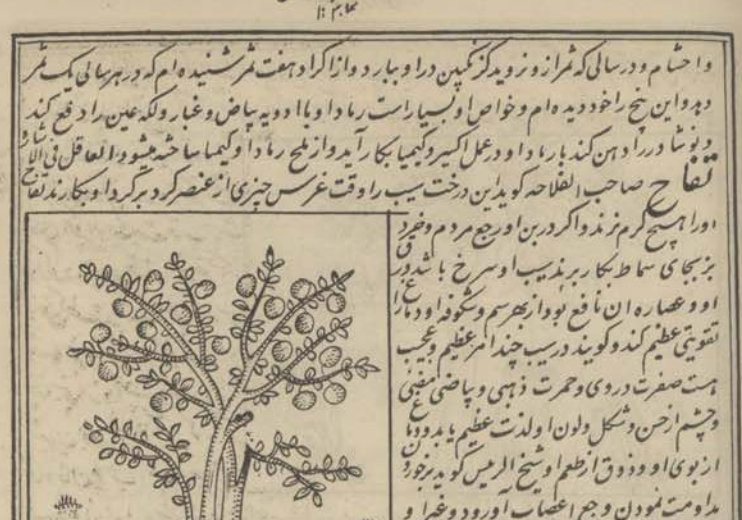 واحشام و در سالی که ثمر از و نروید کزنکبین در او ببارد و از اکراد هفت ثمر شنیده ام که در هر سالی یک ثمر
دهد و این پنج را خود دیده ام و خواص او بسیار است رماد او با ادویه بیاض و غبار و لکه عین را دفع کند
و نوشادر را دهن کند با رماد او در عمل اکسیر و کیمیا بکار آید و از ملح رماد او کیمیا ساخته میشود العاقل فی الاشاره
تفاح صاحب الفلاحه کوید این درخت سیب را وقت غرس چیزی از عنصر کرد بر کرد او بکارند تفاح
اورا هیچ کرم نزند و اکر در بن او رجع مردم و خرد
بز بجای سماط بکار برند سیب او سرخ باشد ورق
او و عصاره ان نافع بود از بهر سم و شکوفه او دماغ را
تقویتی عظیم کند و کویند در سیب چند امر عظیم و عجیب
هست صفرت دردی و حمرت ذهبی و بیاضی فضی
و چشم از حسن و شکل و لون او لذت عظیم یابد و دماغ
از بوی او و ذوق از طعم او شیخ الرئیس کوید بر خوردن
مداومت نمودن وجع اعصاب آورد و